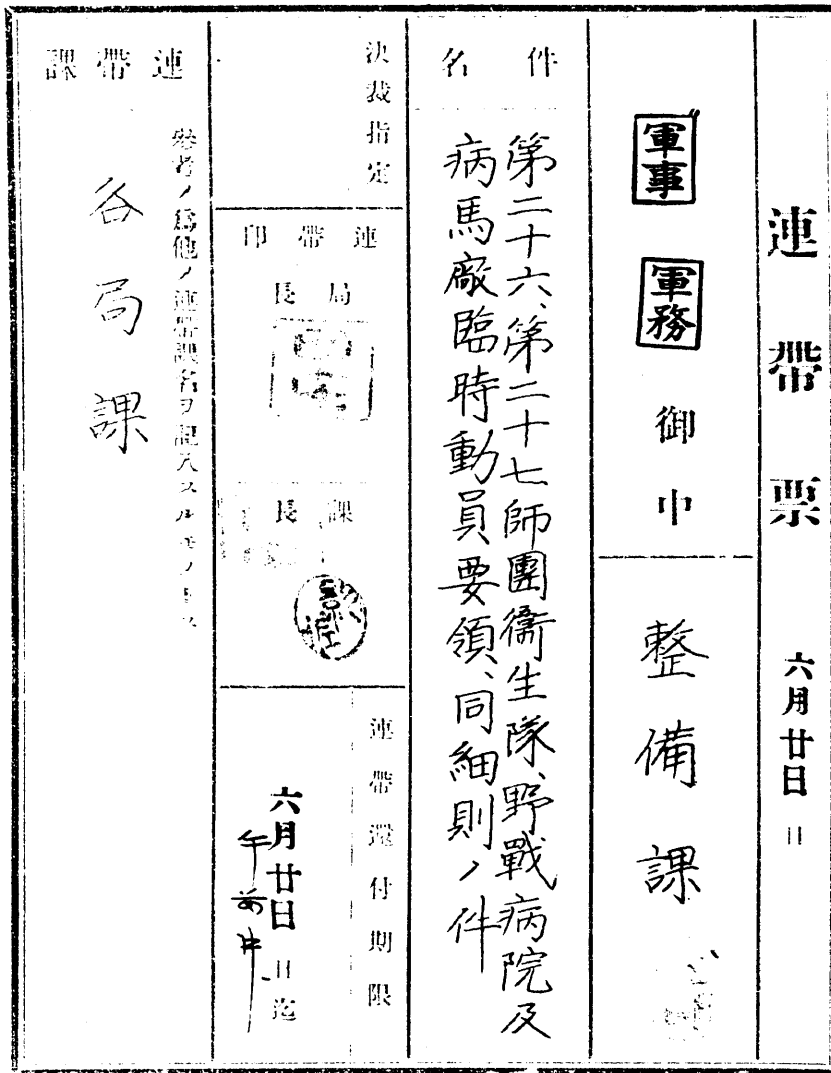 連帶票
六月廿日 日
軍事 軍務 御中
整備課
件名
第二十六、第二十七師團衞生隊、野戰病院及
病馬廠臨時動員要領、同細則ノ件
決裁指定
連帶印
局長
課長
連帶還付期限
六月廿日 日迄
午前中
連帶課
參考ノ爲他ノ連帶課名ヲ記入スルモノトス
各局課